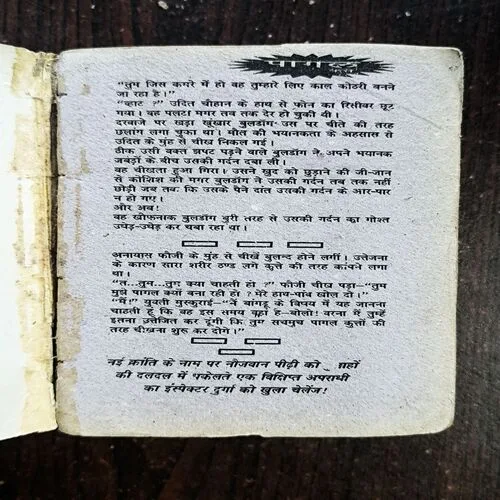 "तुम जिस कमरे में हो वह तुम्हारे लिए काल कोठरी बनने
जा रहा है।"
"व्हाट ?" उदित चौहान के हाथ से फोन का रिसीवर छूट
गया। वह पलटा मगर तब तक देर हो चुकी थी।
दरवाजे पर खड़ा खूंखार बुलडॉग उस पर चीते की तरह
छलांग लगा चुका था। मौत की भयानकता के अहसास से
उदित के मुंह से चीख निकल गई।
ठीक उसी वक्त झपट पड़ने वाले बुलडॉग ने अपने भयानक
जबड़ों के बीच उसकी गर्दन दबा ली।
वह चीखता हुआ गिरा। उसने खुद को छुड़ाने की जी-जान
से कोशिश की मगर बुलडॉग ने उसकी गर्दन तब तक नहीं
छोड़ी जब तक कि उसके पैने दांत उसकी गर्दन के आर-पार
न हो गए।
और अब!
वह खौफनाक बुलडॉग बुरी तरह से उसकी गर्दन का गोश्त
उधेड़-उधेड़ कर चबा रहा था।
अनायास फौजी के मुंह से चीखें बुलन्द होने लगीं। उत्तेजना
के कारण सारा शरीर ठण्ड लगे कुत्ते की तरह कांपने लगा
था।
"त...तुम...तुम क्या चाहती हो ?" फौजी चीख पड़ा–"तुम
मुझे पागल क्यों बना रही हो ? मेरे हाथ-पांव खोल दो।"
"मैं!" युवती मुस्कुराई–"मैं बांगडू के विषय में यह जानना
चाहती हूं कि वह इस समय कहां है–बोलो! वरना मैं तुम्हें
इतना उत्तेजित कर दूंगी कि तुम सचमुच पागल कुत्तों की
तरह चीखना शुरू कर दोगे।"
नई क्रांति के नाम पर नौजवान पीढ़ी को
की दलदल में धकेलते एक विक्षिप्त अपराधी
का इंस्पेक्टर दुर्गा को खुला चेलेंज!